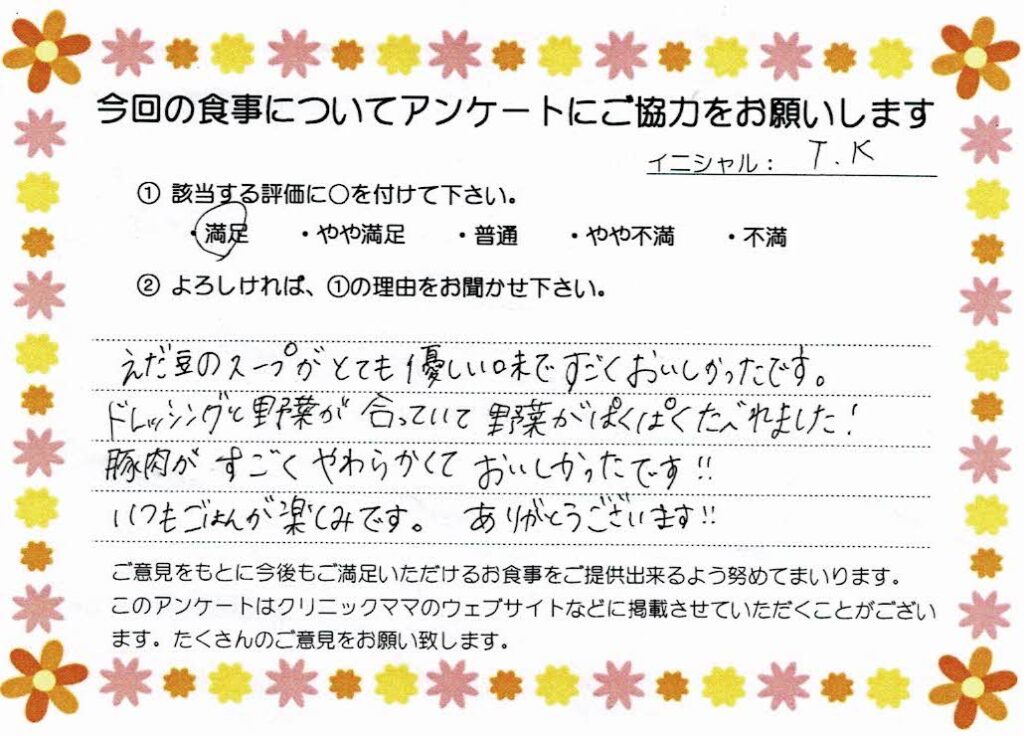 今回の食事についてアンケートにご協力をお願いします
イニシャル： T.K
① 該当する評価に○を付けて下さい。
・満足 ・やや満足 ・普通 ・やや不満 ・不満
② よろしければ、①の理由をお聞かせ下さい。
えだ豆のスープがとても優しい味ですごくおいしかったです。
ドレッシングと野菜が合っていて野菜がぱくぱくたべれました！
豚肉がすごくやわらかくておいしかったです!!
いつもごはんが楽しみです。 ありがとうございます!!
ご意見をもとに今後もご満足いただけるお食事をご提供出来るよう努めてまいります。
このアンケートはクリニックママのウェブサイトなどに掲載させていただくことがござい
ます。たくさんのご意見をお願い致します。